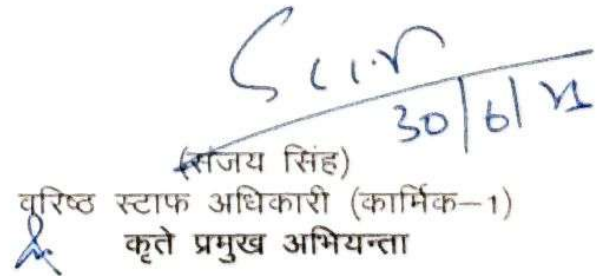 30/6/21
(संजय सिंह)
वरिष्ठ स्टाफ अधिकारी (कार्मिक–1)
कृते प्रमुख अभियन्ता